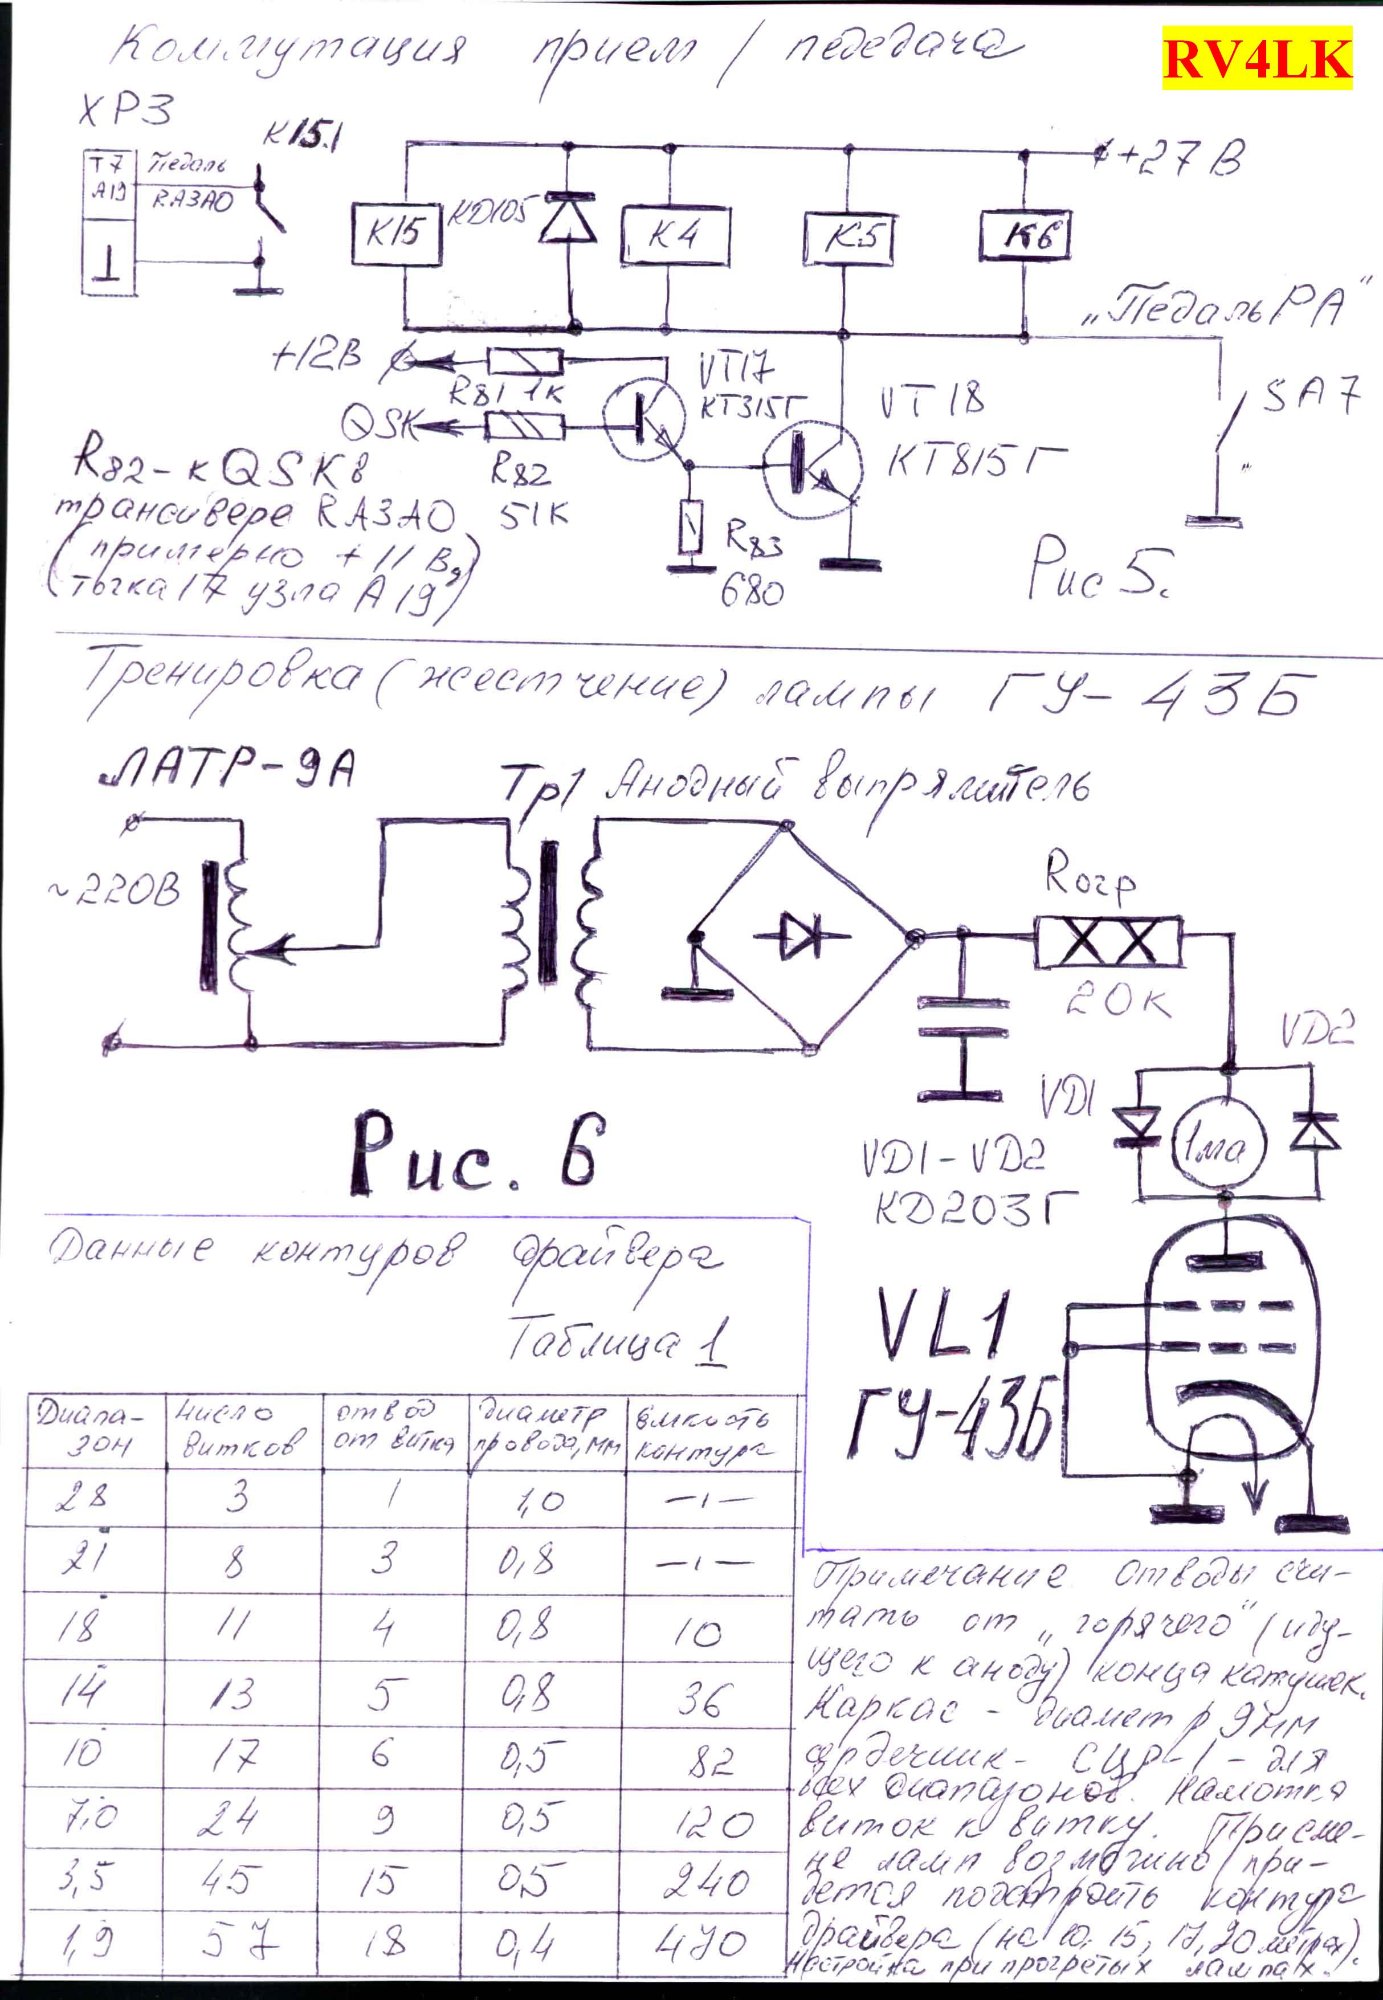 Коммутация прием / передача
RV4LK
ХР3
К15.1
Т7 Педаль
А19 RA3AO
⊥
К15
КD105
К4
К5
К6
+27В
„Педаль РА"
+12В
R81 1к
VT17
КТ315Г
QSK
R82
51К
VT18
КТ815Г
SA7
R82 - к QSK в
трансивере RA3AO
(примерно +11 В,
точка 17 узла А19)
R83
680
Рис 5.
Тренировка (жестчение) лампы ГУ-43Б
ЛАТР-9А
Тр1 Анодный выпрямитель
~220В
Rогр
20К
VD2
VD1
1ма
VD1-VD2
КD203Г
Рис. 6
VL1
ГУ-43Б
Данные контуров драйвера
Таблица 1
Диапа-зон | число витков | отвод от витка | диаметр провода, мм | ёмкость контура
28 | 3 | 1 | 1,0 | —ı—
21 | 8 | 3 | 0,8 | —ı—
18 | 11 | 4 | 0,8 | 10
14 | 13 | 5 | 0,8 | 36
10 | 17 | 6 | 0,5 | 82
7,0 | 24 | 9 | 0,5 | 120
3,5 | 45 | 15 | 0,5 | 240
1,9 | 57 | 18 | 0,4 | 470
Примечание. Отводы счи-
тать от „горячего" (иду-
щего к аноду) конца катушек.
Каркас - диаметр 9 мм
сердечник - СЦР-1 - для
всех диапазонов. Намотка
виток к витку. При сме-
не ламп возможно при-
дется подстроить контура
драйвера (на 10, 15, 17, 20 метрах).
Настройка при прогретых лампах.